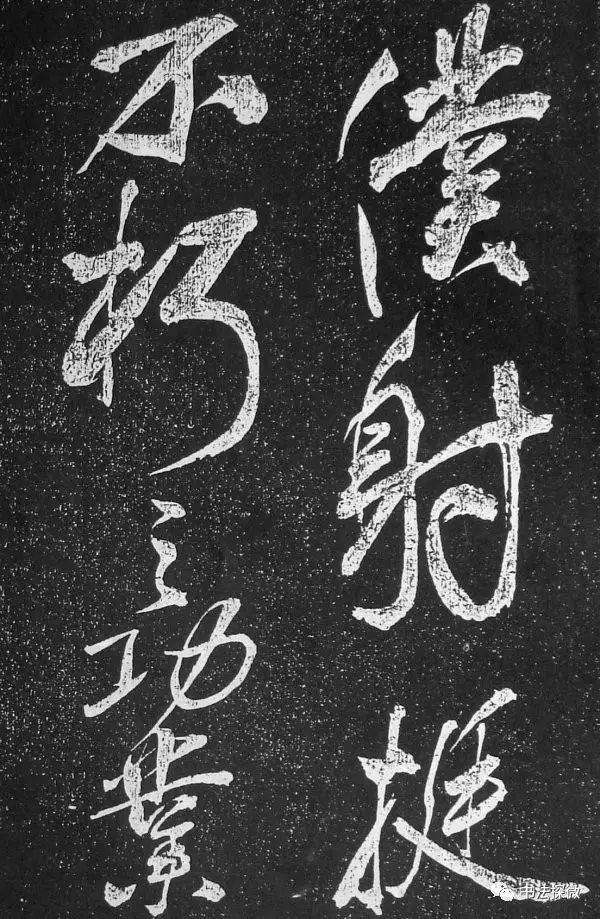 僕射挺
不朽之功業
书法探微